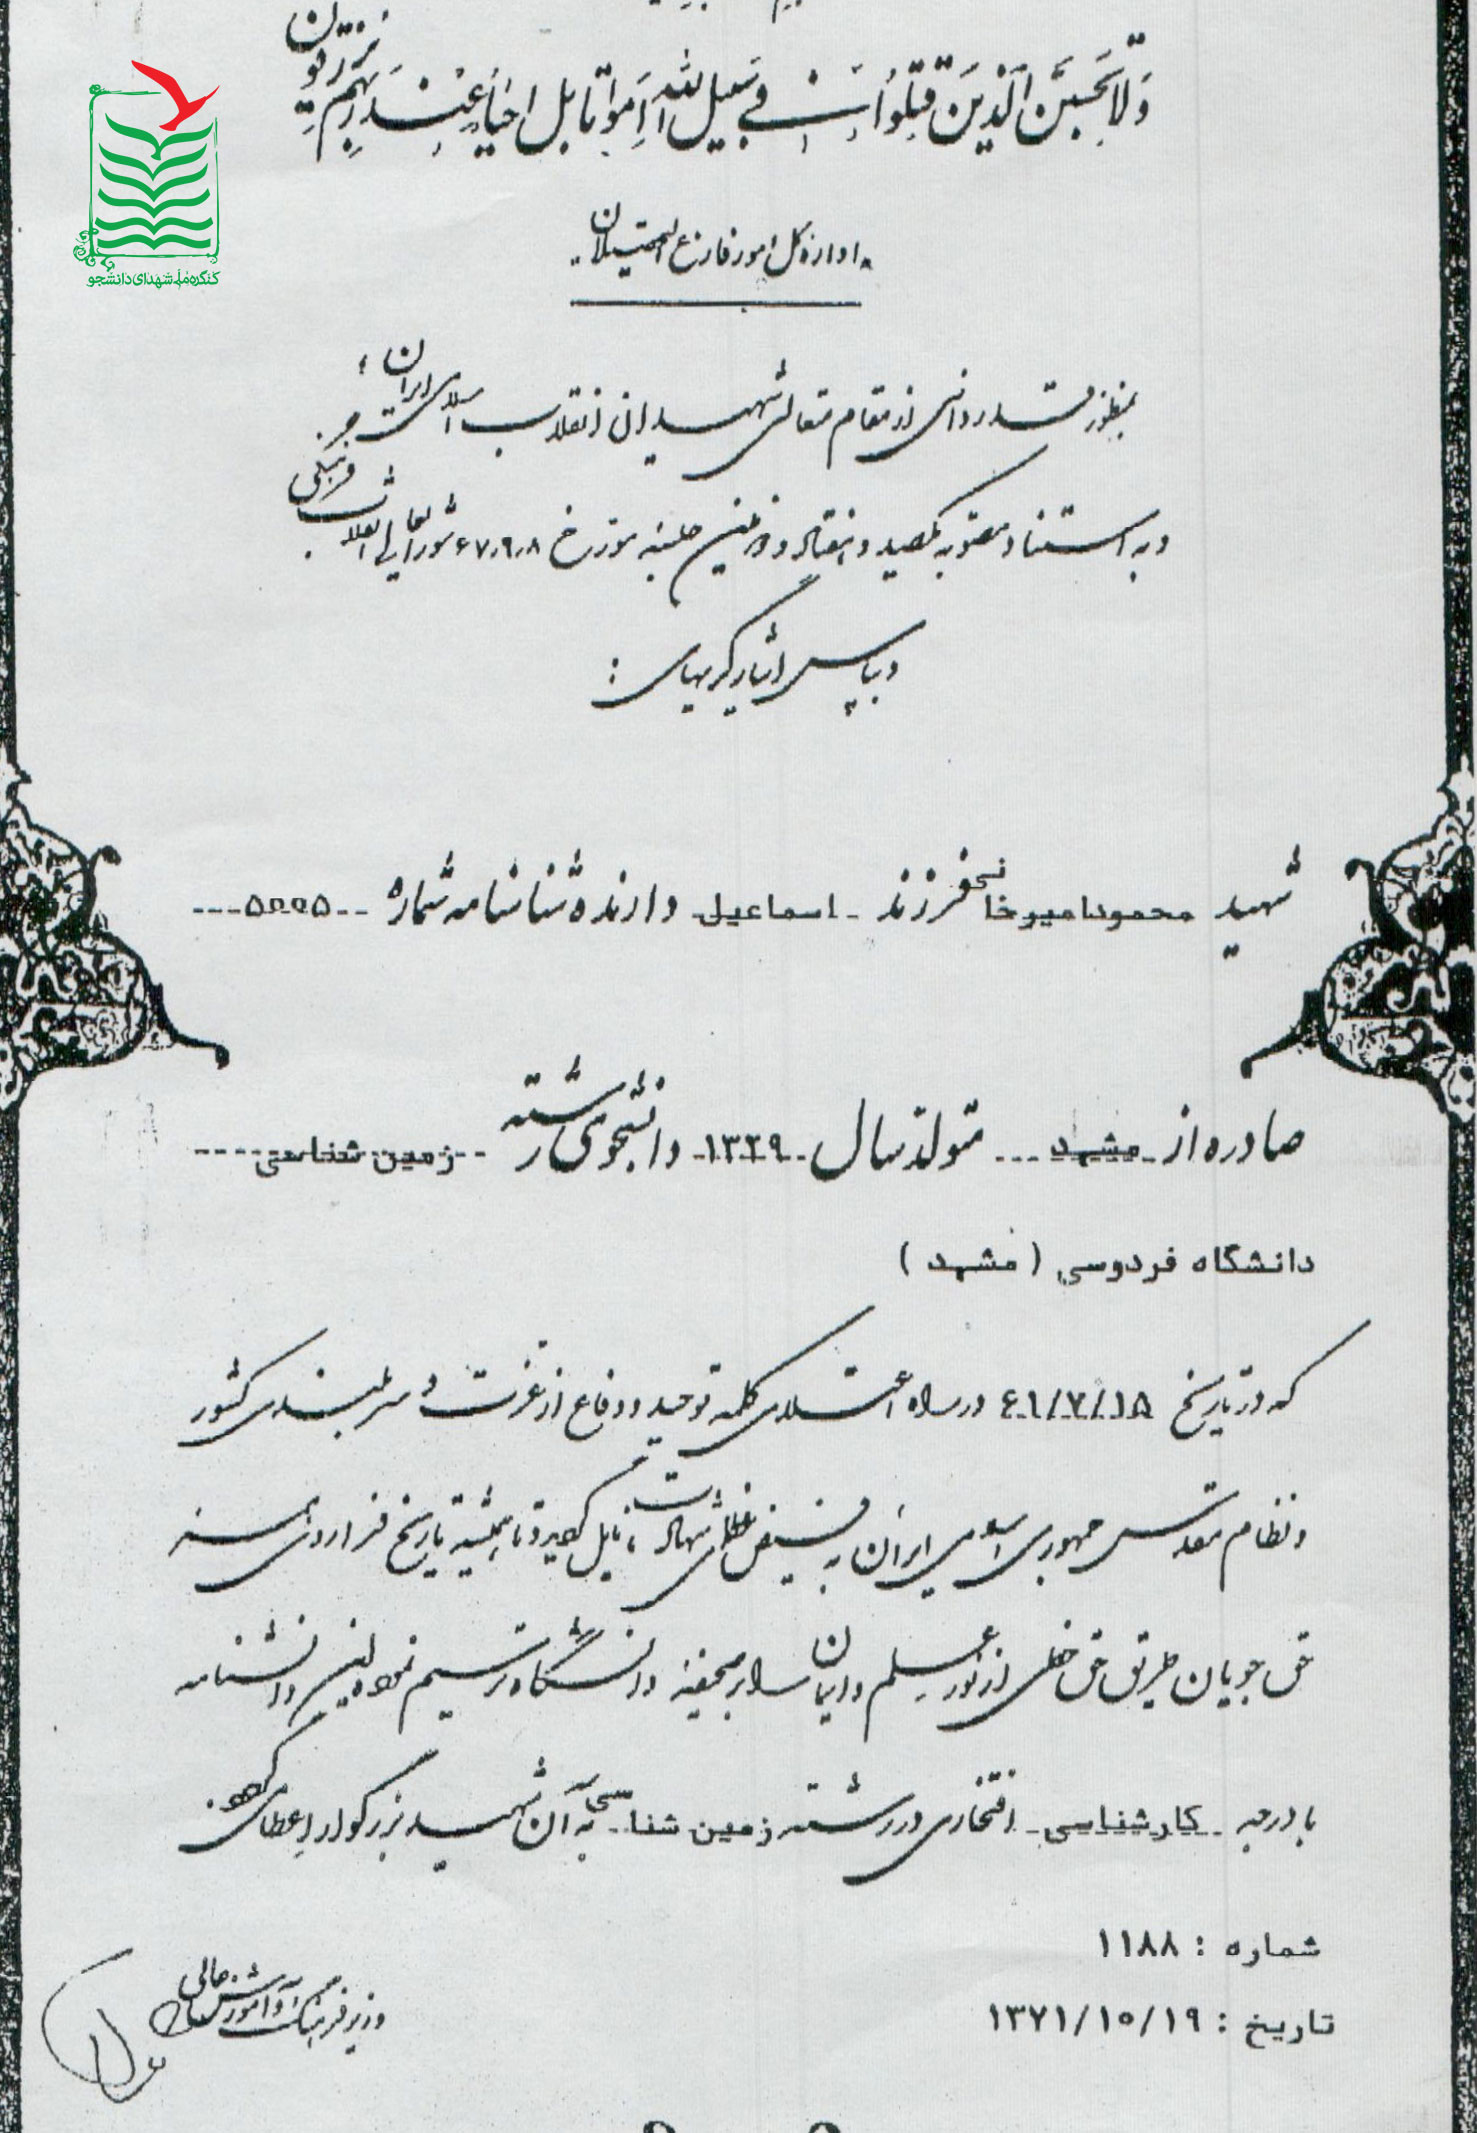 وَلا تَحسَبَنَّ الَّذينَ قُتِلُوا في سَبيلِ اللهِ اَمواتا بَل اَحیاءٌ عِندَ رَبِّهِم یُرزَقون
کنگره ملی شهدای دانشجو
اداره کل امور فارغ التحصیلان
بمنظور قدردانی از مقام متعالی شهیدان انقلاب اسلامی ایران ؛
و به استناد مصوبه یکصد و هفتاد و نهمین جلسه مورخ ۶۷٫۹٫۸ شورایعالی انقلاب فرهنگی
و بپاس ایثارگریهای :
شهید محمود امیرخانی فرزند اسماعیل دارنده شناسنامه شماره ۵۰۰۰۵
صادره از مشهد متولد سال ۱۳۲۹ دانشجوی رشته زمین شناسی
دانشگاه فردوسی ( مشهد )
که در تاریخ ۶۱/۷/۱۵ در راه اعتلای کلمه توحید و دفاع از عزت و سربلندی کشور
و نظام مقدس جمهوری اسلامی ایران به فیض عظمای شهادت نایل گردید و تا همیشه تاریخ فرا روی همه
حق جویان طریق حق خطی از نور علم و ایمان را بر صحیفه دانشگاه ترسیم نمود این دانشنامه
با درجه کارشناسی افتخاری در رشته زمین شناسی به آن شهید بزرگوار اعطا می گردد.
شماره : ۱۱۸۸
تاریخ : ۱۳۷۱/۱۰/۱۹
وزیر فرهنگ و آموزش عالی